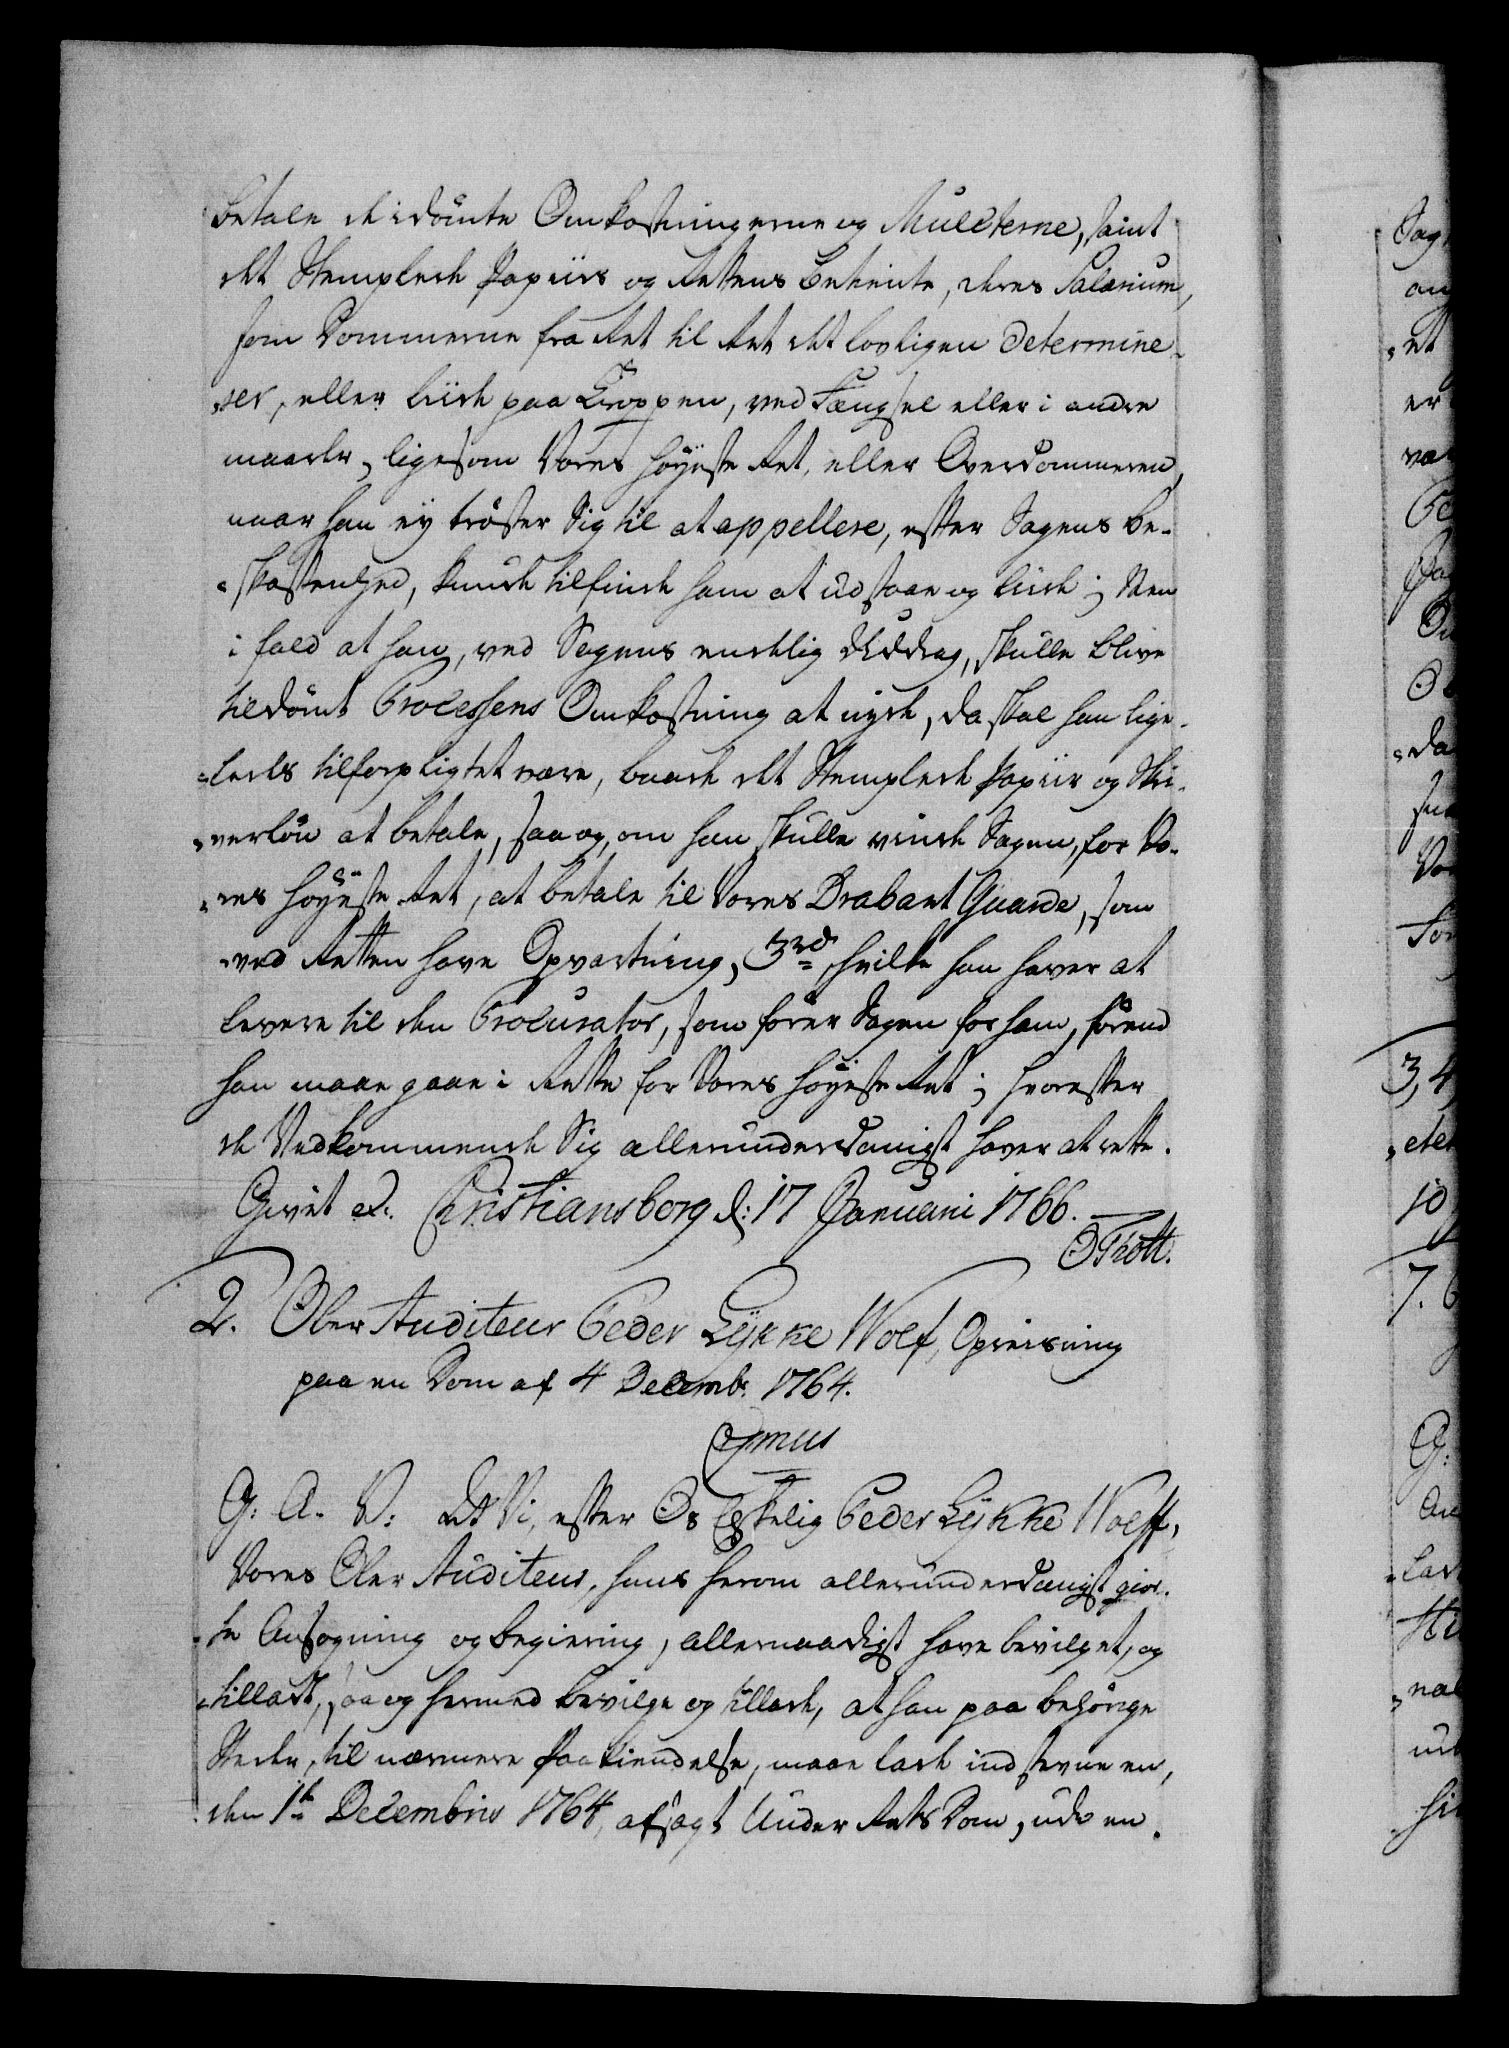 betale de idömte Omkostningerne og Mulcterne, samt
det Stemplede Papiirs og Rettens Betiente, deres Salarium,
som Dommerne fra Ret til Ret det lovligen determine-
-rer, eller liide paa Kroppen, ved Fængsel eller i andre
maader, ligesom Vores Höyeste Ret, eller Overdommeren,
naar han ey tröster Sig til at appellere, efter Sagens be-
-skaffenhed, kunde tilfinde ham at udstaae og liide; Men
i fald at han, ved Sagens endelig Uddrag, skulle blive
tildömt Processens Omkostning at nyde, da skal han lige-
-ledes tilforpligtet være, baade det Stemplede Papiir og Skri-
-verlön at betale, saa og, om han skulle vinde Sagen, for Vo-
-res Höyeste Ret, at betale til Vores Drabant Guarde, som
ved Retten have Opvartning, 3 rd, hvilke han haver at
levere til den Procurator, som förer Sagen for ham, förend
han maae gaae i Rette for Vores Höyeste Ret; hvorefter
de Vedkommende Sig allerunderdanigst haver at rette.
Givet &. Christiansborg d: 17 Januarii 1766.
O Thott.
2. Ober Auditeur Peder Lykke Wolf, Opreisning
paa en Dom af 4 Decembr. 1764.
G: A. V: At Vi, efter Os Elskelig Peder Lykke Wolff,
Vores Ober Auditeur, hans herom allerunderdanigst gior-
-te Ansögning og Begiering, allernaadigst have bevilget, og
-tilladt, saa og hermed bevilge og tillade, at han paa behörige
Steder, til nærmere Paakiendelse, maae lade indstevne en,
den Decembris 1764, afsagt Under Rets Dom, uden